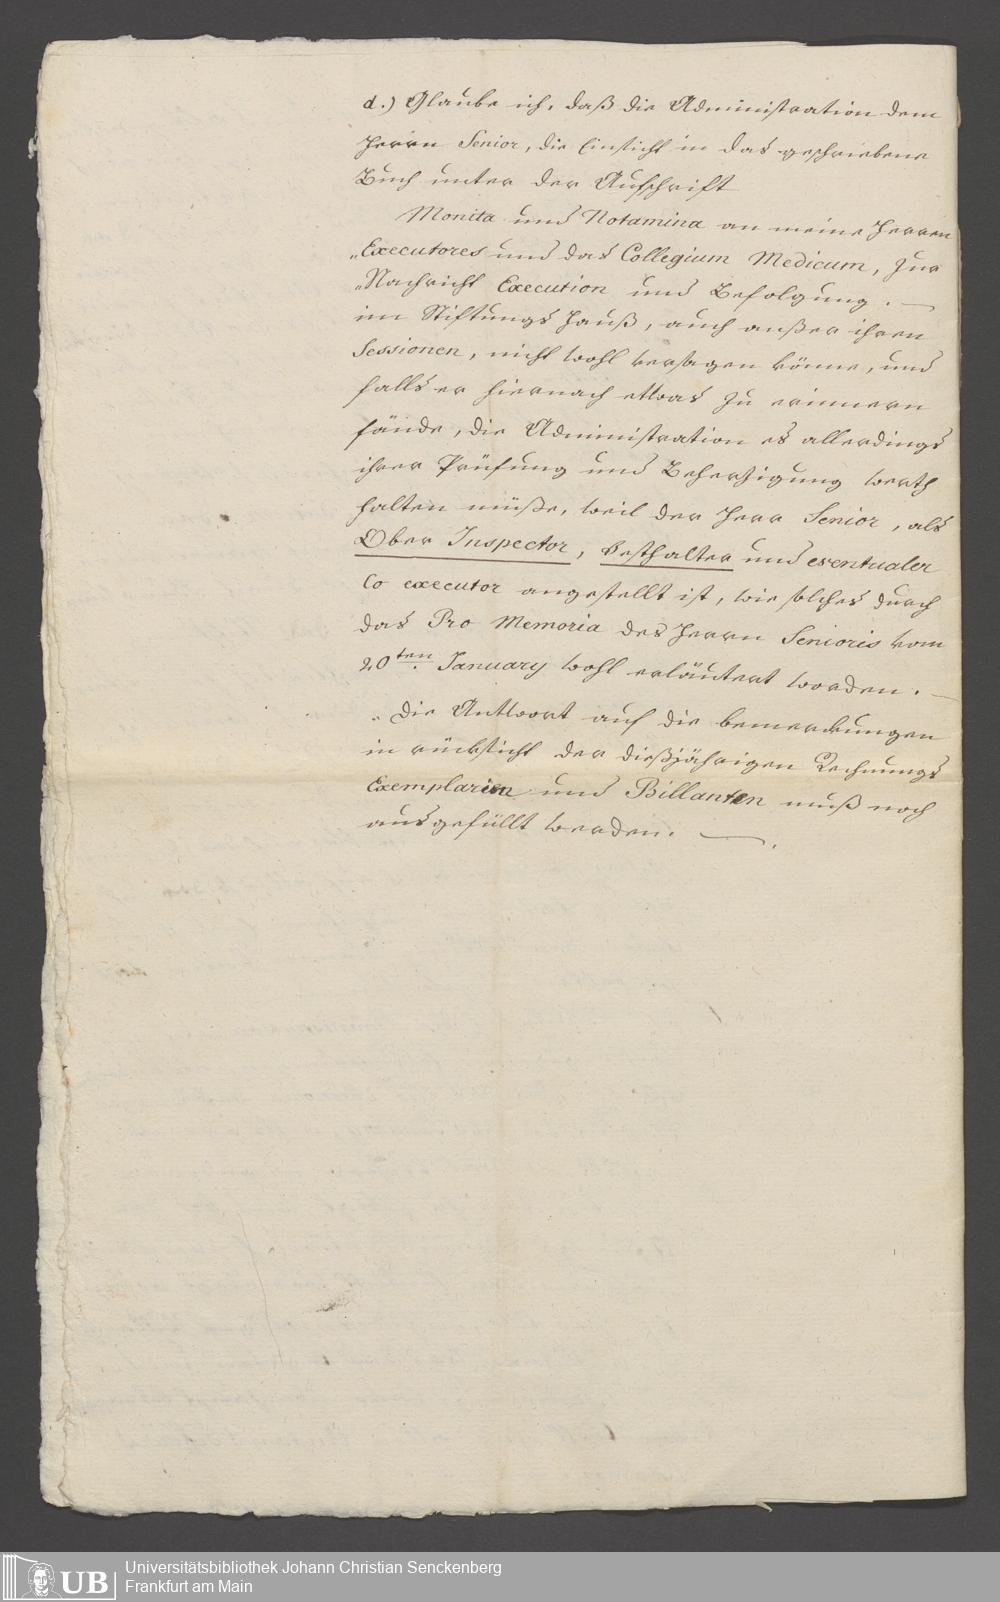 d.) Glaube ich, daß die Administration dem
Herrn Senior, die Einsicht in das geschriebene
Buch unter der Aufschrift
Monita und Notamina an meine Herren
„Executores und das Collegium Medicum, zur
„Nachricht Execution und Befolgung. —
im Stiftungs Hauß, auch außer ihren
Sessionen, nicht wohl versagen könne, und
falls er hiernach etwas zu erinnern
fände, die Administration es allerdings
ihrer Prüfung und Beherzigung werth
halten müße, weil der Herr Senior, als
Ober Inspector, Festhalter und eventualer
Co executor angestellt ist, wie solches durch
das Pro Memoria des Herrn Senioris vom
20ten January wohl erläutert worden. —
„Die Antwort auf die bemerckungen
in rücksicht der dießjährigen Rechnungs
Exemplarien und Billanten muß noch
ausgefüllt werden. —.
UB
Universitätsbibliothek Johann Christian Senckenberg
Frankfurt am Main